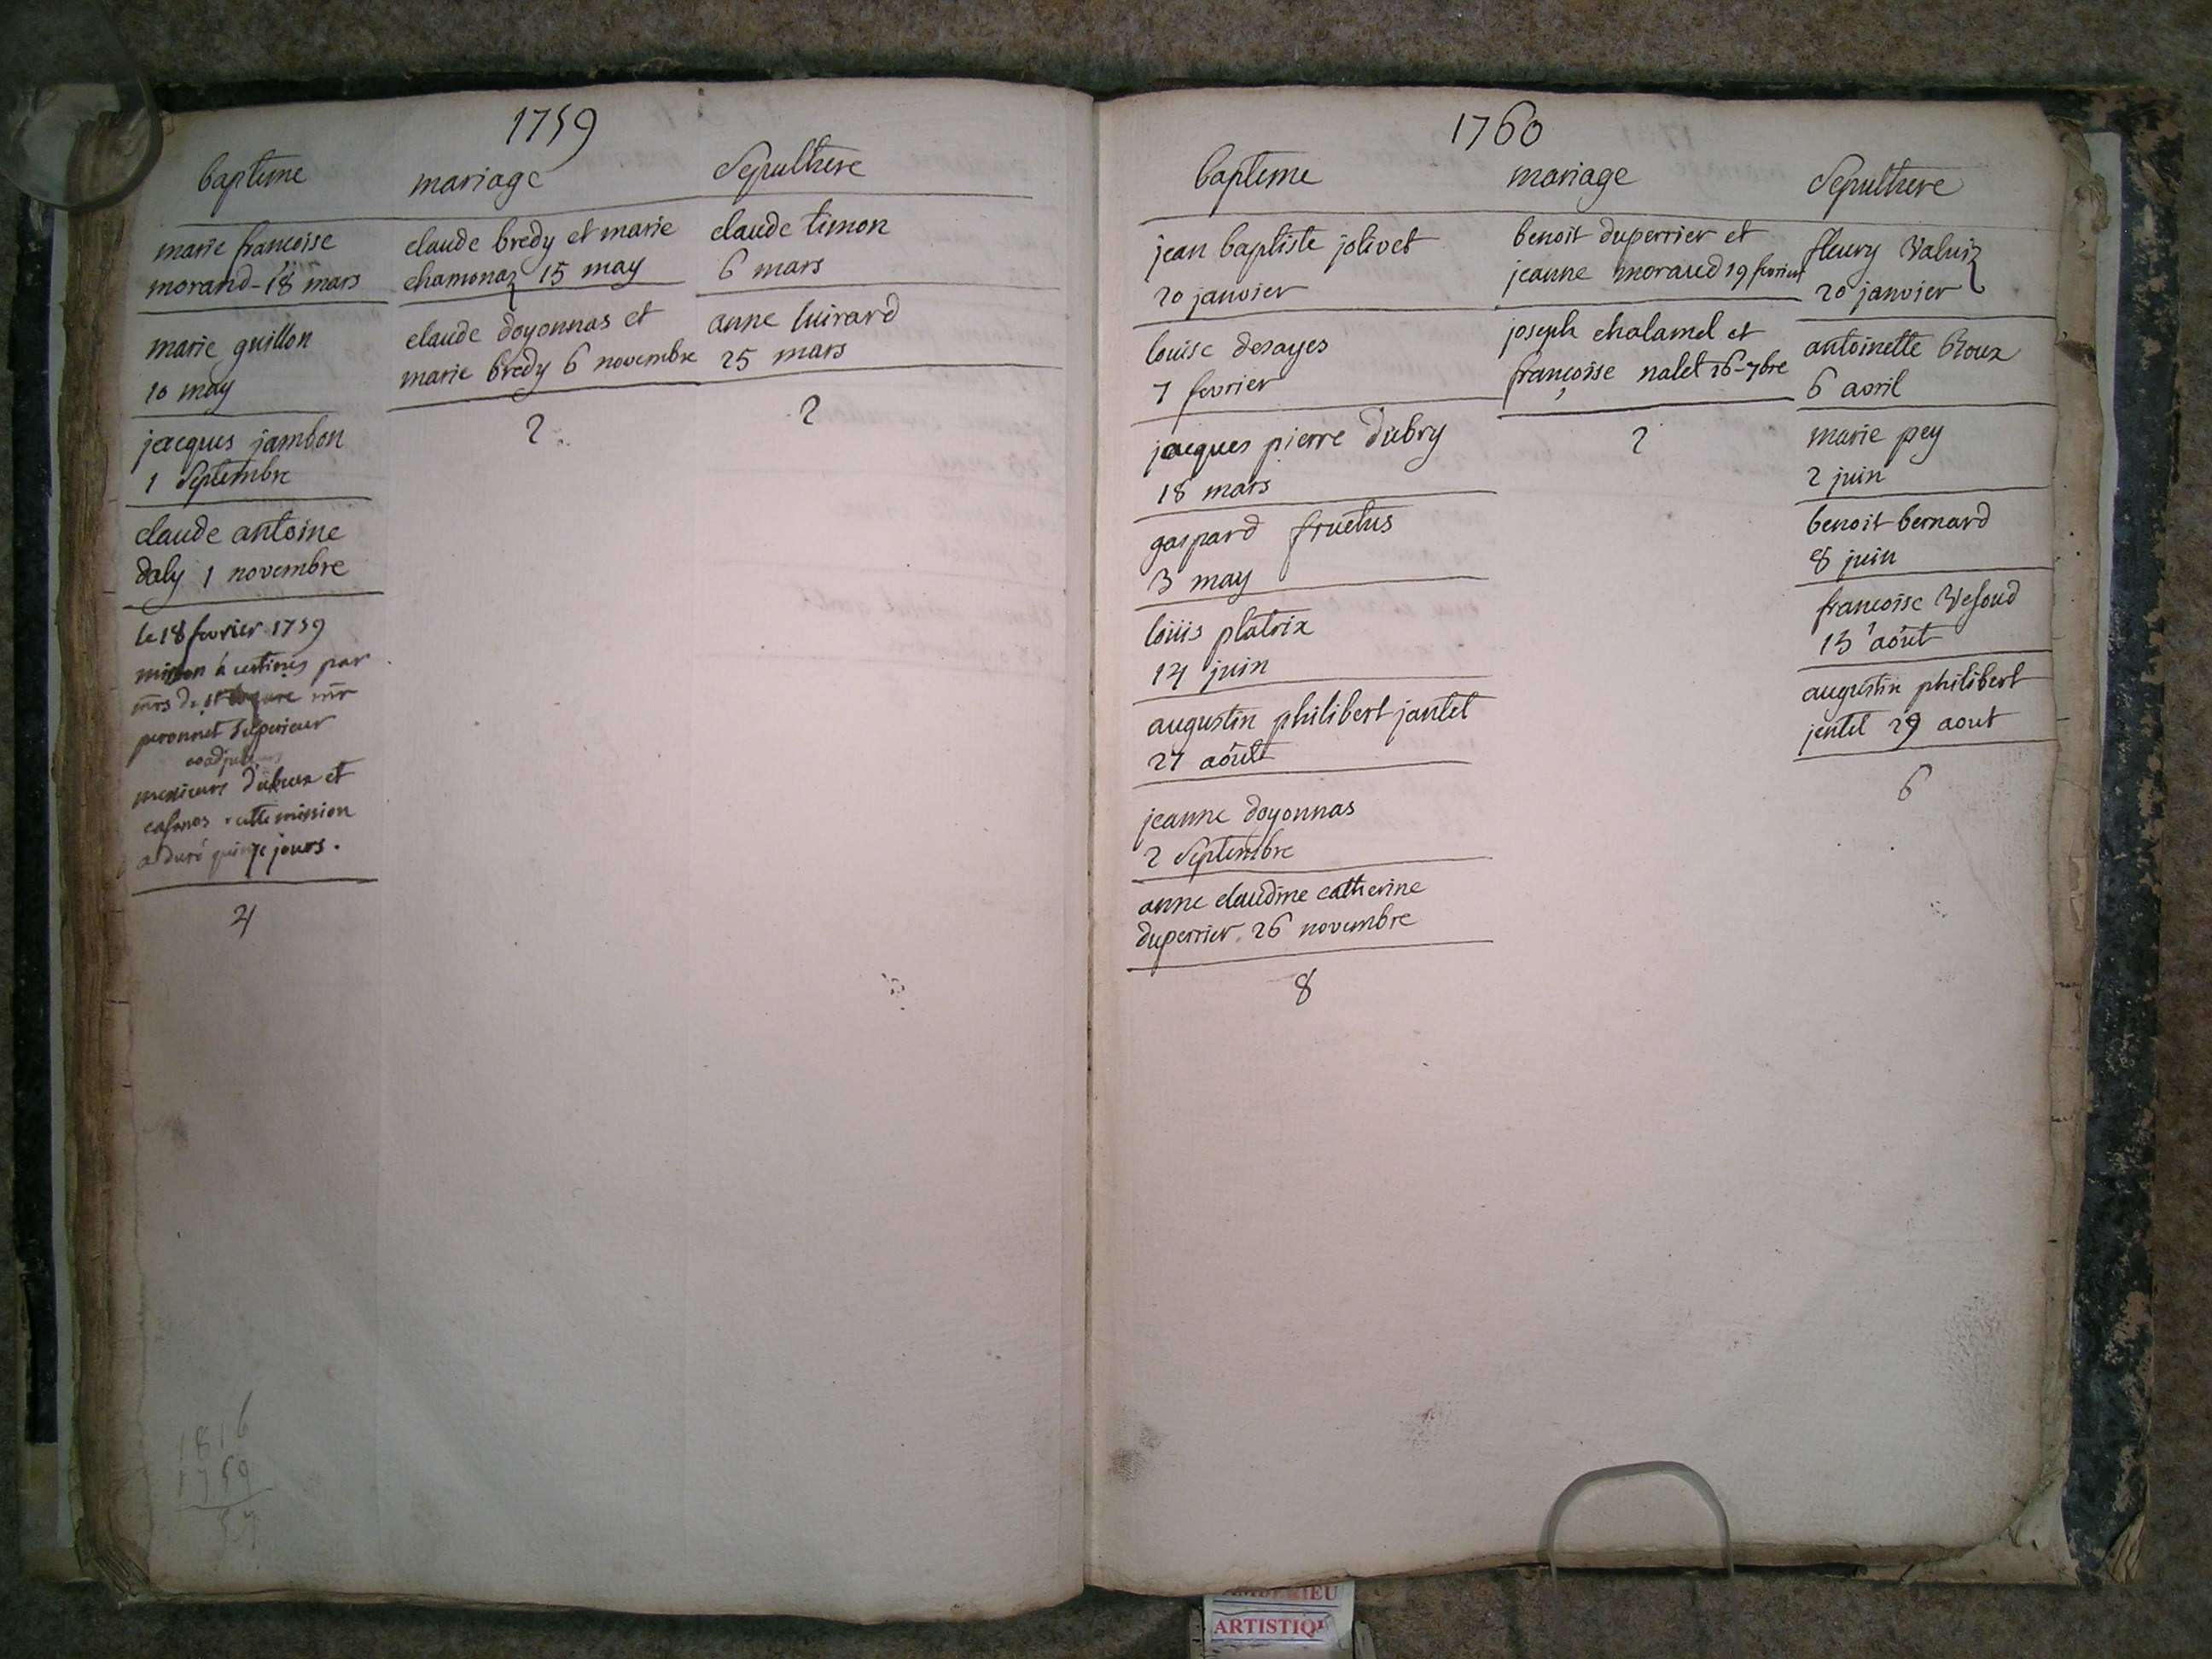 1759
bapteme
marie francoise
morand - 18 mars
marie guillon
10 may
jacques jambon
1 Septembre
claude antoine
daly 1 novembre
le 18 fevrier 1759
mission à certines par
mrs de st mr
peronnet Superieur
messieurs et
cette mission
a duré quinze jours.
4
mariage
claude bredy et marie
chamonaz 15 may
claude doyonnas et
marie bredy 6 novembre
2
Sepulthere
claude timon
6 mars
anne luirard
25 mars
2
1816
1759
57
1760
bapteme
jean baptiste jolivet
20 janvier
louise desayes
7 fevrier
jacques pierre dubry
18 mars
gaspard fructus
3 may
loüis platrix
14 juin
augustin philibert jantet
27 août
jeanne doyonnas
2 Septembre
anne claudine catherine
duperrier 26 novembre
8
mariage
benoit duperrier et
jeanne moraud 19 fevrier
joseph chalamel et
françoise nalet 26 - 7bre
2
Sepulthere
fleury
20 janvier
antoinette
6 avril
marie pey
2 juin
benoit bernard
8 juin
francoise
13 août
augustin philibert
jentet 29 aout
6
ARTISTIQ